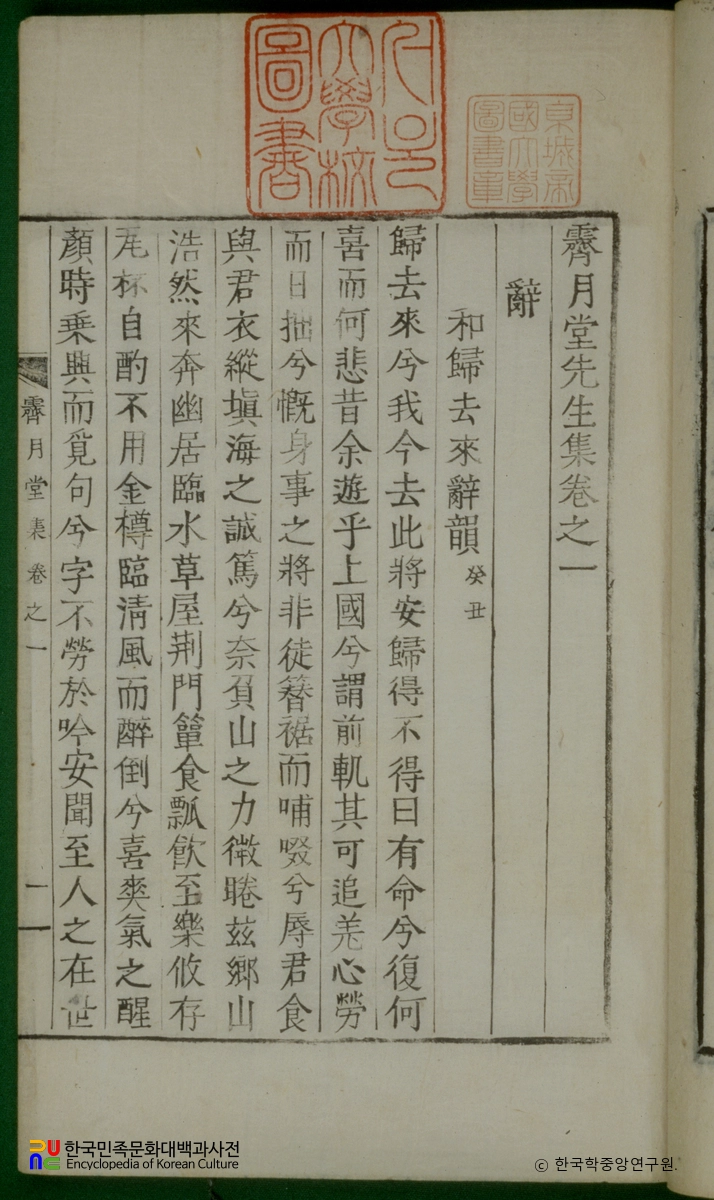 서울大學校圖書
京城帝國大學圖書章
霽月堂先生集卷之一
辭
和歸去來辭韻 癸丑
歸去來兮我今去此將安歸得不得曰有命兮復何
喜而何悲昔余遊乎上國兮謂前軌其可追羌心勞
而日拙兮慨身事之將非徒簪裾而哺啜兮辱君食
與君衣縱塡海之誠篤兮奈負山之力微睠玆鄕山
浩然來奔幽居臨水草屋荆門簞食瓢飮至樂攸存
瓦杯自酌不用金樽臨淸風而醉倒兮喜爽氣之醒
顔時乘興而覓句兮字不勞於吟安聞至人之在世
霽月堂集卷之一 一
한국민족문화대백과사전
Encyclopedia of Korean Culture
© 한국학중앙연구원.